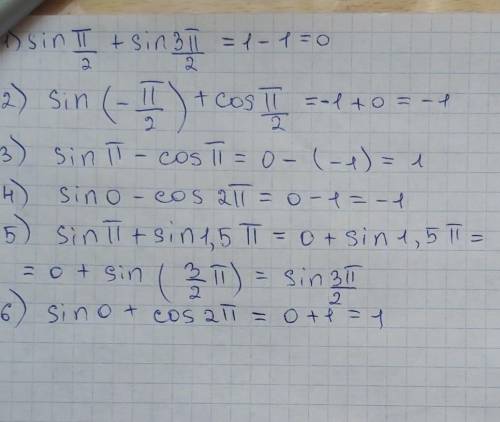 1) sin π/2 + sin 3π/2 = 1 - 1 = 0
2) sin (-π/2) + cos π/2 = -1 + 0 = -1
3) sin π - cos π = 0 - (-1) = 1
4) sin 0 - cos 2π = 0 - 1 = -1
5) sin π + sin 1,5 π = 0 + sin 1,5 π =
= 0 + sin (3/2 π) = sin 3π/2
6) sin 0 + cos 2π = 0 + 1 = 1